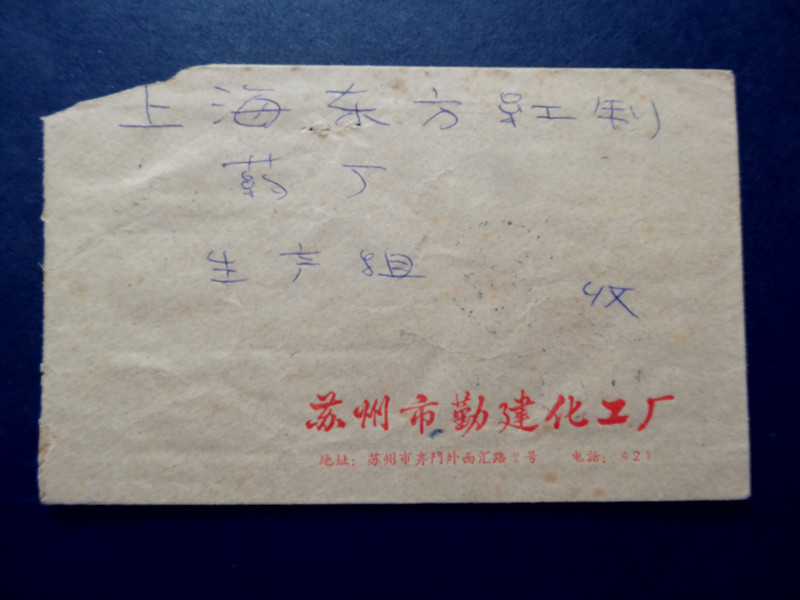 上海东方红制
药厂
生产组
收
苏州市勤建化工厂
地址：苏州市齐門外西汇路 号 电話： 421